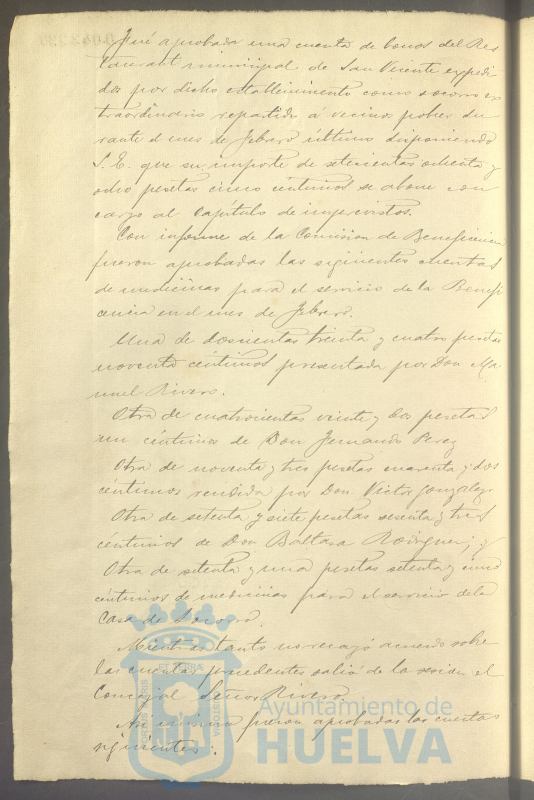 Fué aprobada una cuenta de bonos del Res
taurant municipal de San Vicente expedi
dos por dicho establecimiento como socorro ex
traordinario repartido á vecinos pobres du
rante el mes de febrero último disponiendo
S. E. que su importe de setecientas ochenta y
ocho pesetas cinco céntimos se abone con
cargo al capítulo de imprevistos.
Con informe de la Comision de Beneficencia
fueron aprobadas las siguientes cuentas
de medicinas para el servicio de la Benefi
cencia en el mes de febrero.
Una de doscientas treinta y cuatro pesetas
noventa céntimos presentada por Don Ma
nuel Rivero.
Otra de cuatrocientas veinte y dos pesetas
un céntimos de Don Fernando Perez
Otra de noventa y tres pesetas cuarenta y dos
céntimos rendida por Don Victor Gonzalez.
Otra de setenta y siete pesetas sesenta y tres
céntimos de Don Baltasa Rodriguez; y
Otra de setenta y una pesetas setenta y cinco
céntimos de medicinas para el servicio dela
Casa de Socorro.
Mientras tanto no recayó acuerdo sobre
las cuentas precedentes salió de la sesion el
Concejal Señor Rivero
Asi mismo fueron aprobadas las cuentas
siguientes:
Ayuntamiento de
HUELVA